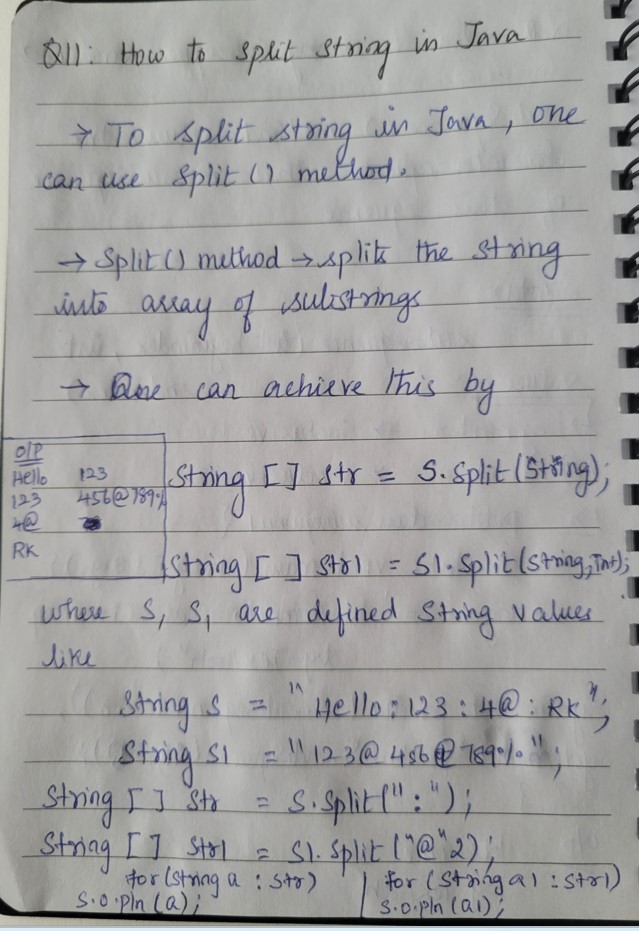 Q11: How to split string in Java
→ To split string in Java, one
can use split () method.
→ Split () method → splits the string
into array of substrings
→ One can achieve this by
O/P
Hello 123
123 456@789%
4@
RK
String [] str = S.Split(String);
String [ ] str1 = S1.Split(String, Int);
where S, S1 are defined String values
like
String S = "Hello:123:4@:RK";
String S1 = "123@456@789%";
String [] str = S.Split(":");
String [] str1 = S1.Split("@"2);
for (String a : str)
S.o.pln (a);
for (String a1 : str1)
S.o.pln (a1);